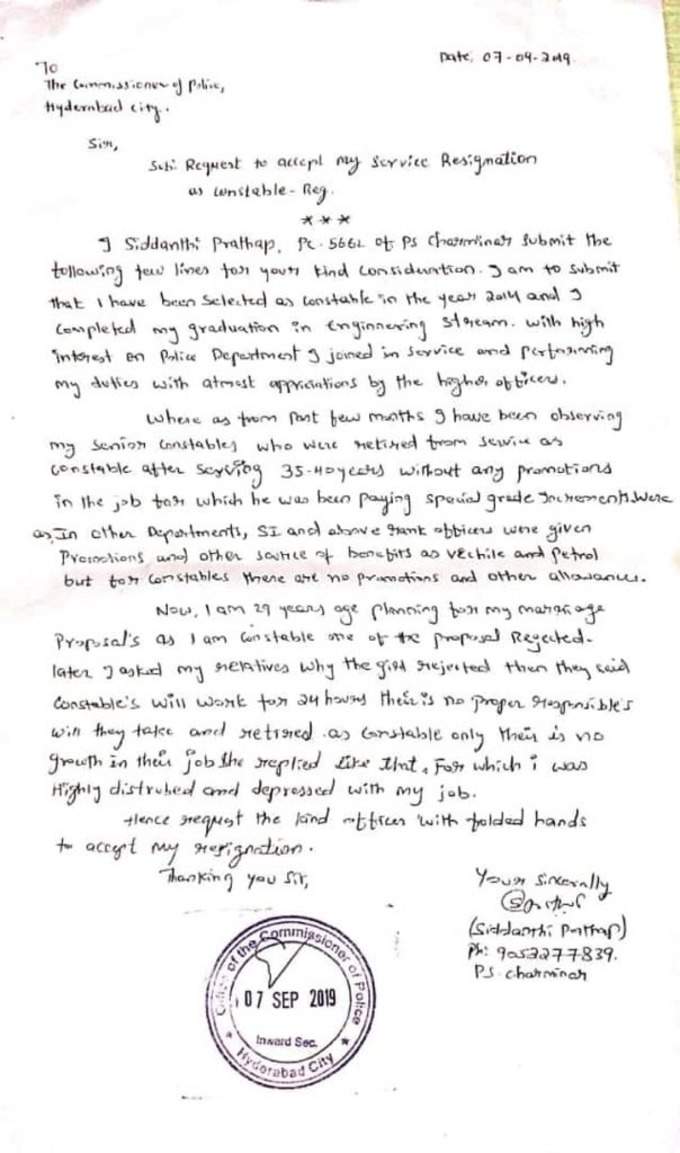 Date, 07-09-2019
To
The Commissioner of Police,
Hyderabad City.
Sir,
Sub: Request to accept my Service Resignation
as constable - Reg.
***
I Siddanthi Prathap, PC-5662 of PS Charminar Submit the
following few lines for your kind consideration. I am to submit
that I have been Selected as constable in the year 2014 and I
Completed my graduation in Enginnering Stream. with high
interest on Police Department I joined in service and performing
my duties with atmost appriciations by the higher officers.
Where as from Past few months I have been observing
my senior constables who were retired from service as
constable after serving 35-40 years without any promotions
in the job for which he was been paying special grade Increments were
as, In other Departments, SI and above rank officers were given
Promotions and other source of benefits as vechile and Petrol
but for constables there are no promotions and other allowances.
Now, I am 29 years age planning for my marriage
Proposal's as I am Constable one of the proposal Rejected.
later I asked my relatives why the girl rejected then they said
Constable's will work for 24 hours their is no proper responsible's
will they take and retired as constable only their is no
growth in their job she replied like that, For which i was
Highly distrubed and depressed with my job.
Hence request the kind officer with folded hands
to accept my resignation.
Thanking you Sir,
Your Sincerally
(Siddanthi Prathap)
Ph: 9052277839.
PS. Charminar
Office of the Commissioner of Police
07 SEP 2019
Inward Sec.
* Hyderabad City *